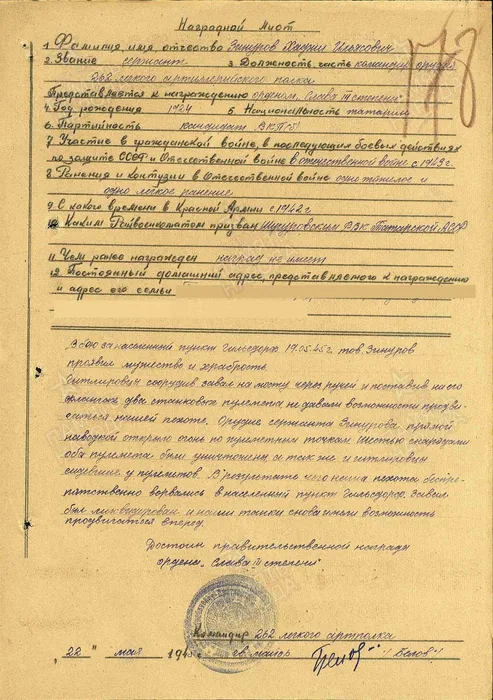 Наградной лист
1. Фамилия, имя, отчество Зинуров Хасим Ильясович
2. Звание сержант 3. Должность, часть командир орудия
262 легкого артиллерийского полка
Представляется к награждению орденом „Слава III степени"
4. Год рождения 1924 5. Национальность татарин
6. Партийность кандидат ВКП(б)
7. Участие в гражданской войне, в последующих боевых действиях
по защите СССР и Отечественной войне в отечественной войне с 1943 г.
8. Ранения и контузии в Отечественной войне одно тяжелое и
одно легкое ранение
9. С какого времени в Красной Армии с 1942 г.
10. Каким Райвоенкоматом призван РВК Татарской АССР
11. Чем ранее награжден наград не имеет
12. Постоянный домашний адрес, представляемого к награждению
и адрес его семьи
178
В бою за населенный пункт Гильсдорф 19.05.45 г. тов. Зинуров
проявил мужество и храбрость.
Гитлерович соорудив завал на мосту через ручей и поставив на его
флангах два станковых пулемета не давали возможности продви-
гаться нашей пехоте. Орудие сержанта Зинурова прямой
наводкой открыло огонь по пулеметным точкам. Шестью снарядами
оба пулемета были уничтожены а так же и гитлеровцы
сидевшие у пулеметов. В результате чего наша пехота беспре-
пятственно ворвались в населенный пункт Гильсдорф. Завал
был ликвидирован и наши танки снова имели возможность
продвигаться вперед.
Достоин правительственной награды
ордена „Слава III степени"
Командир 262 легкого артполка
„22" мая 1945 г. гв. майор /Белов/